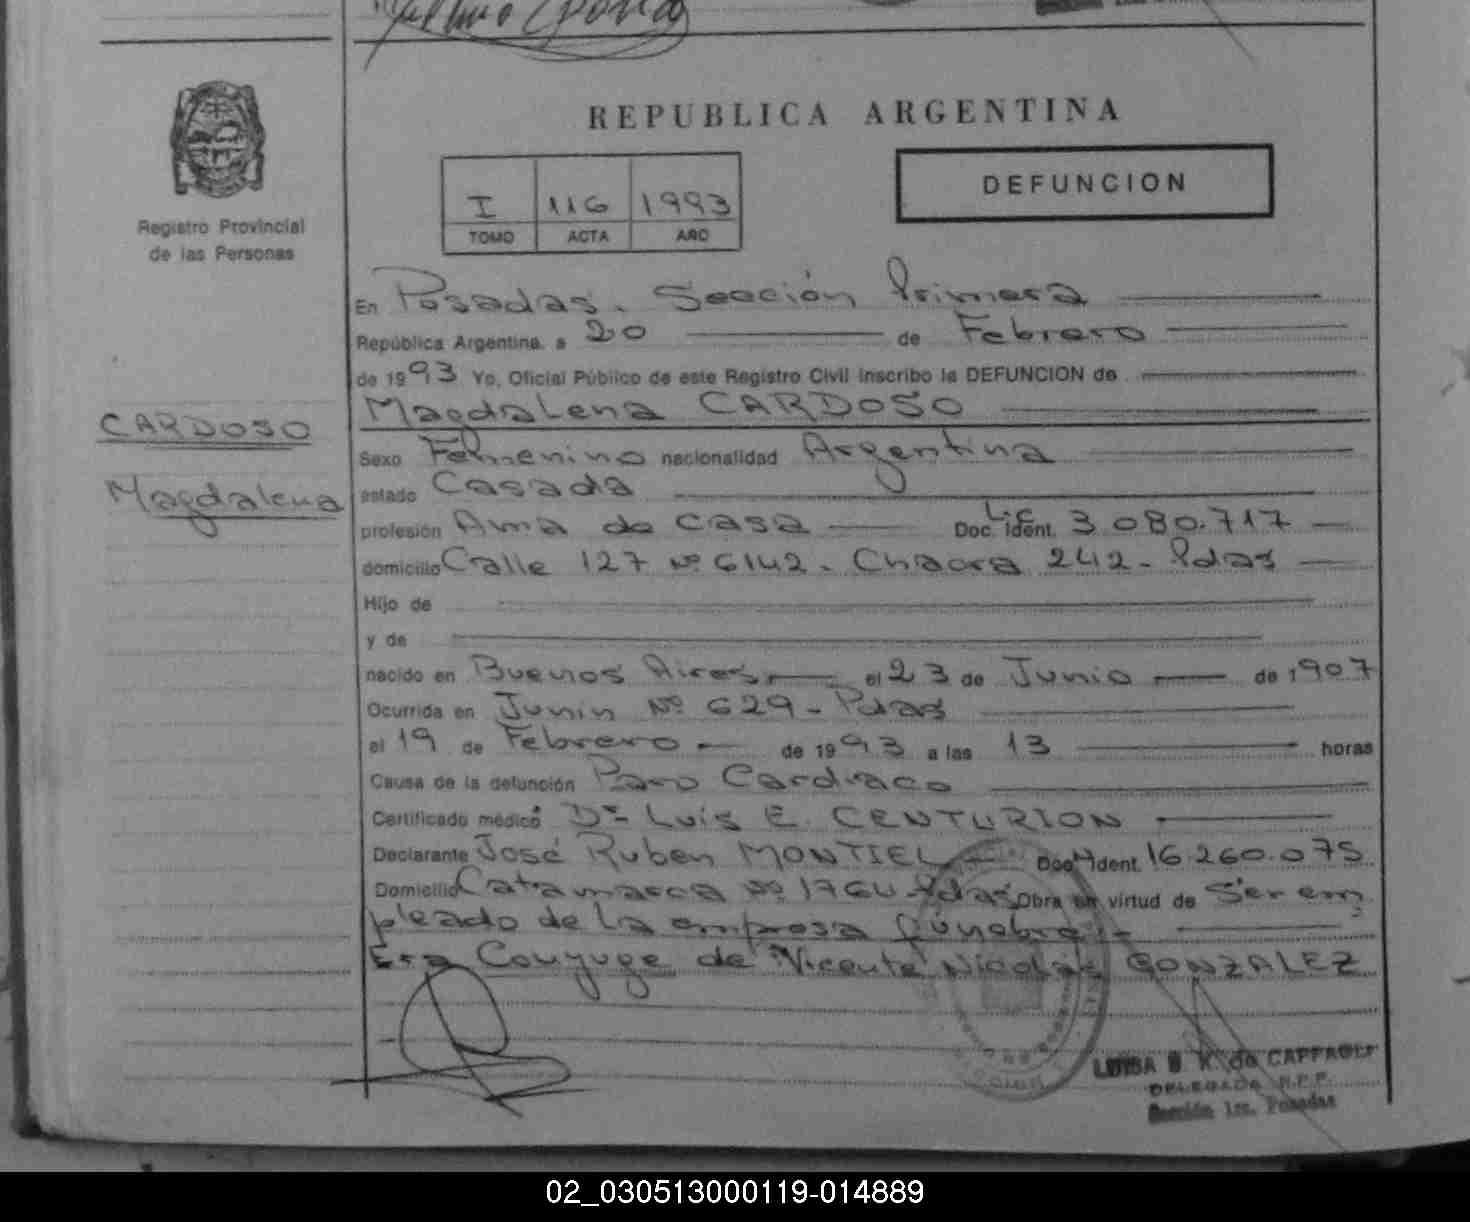 REPUBLICA ARGENTINA
Registro Provincial
de las Personas
I 116 1993
TOMO ACTA AÑO
DEFUNCION
CARDOSO
Magdalena
En Posadas. Sección Primera
República Argentina, a 20 de Febrero
de 1993 Yo, Oficial Público de este Registro Civil inscribo la DEFUNCION de
Magdalena CARDOSO
Sexo Femenino nacionalidad Argentina
estado Casada
profesión Ama de casa Doc. Ident. L.C 3.080.717
domicilio Calle 127 Nº 6142 - Chacra 242 - Pdas
Hijo de
y de
nacido en Buenos Aires el 23 de Junio de 1907
Ocurrida en Junín Nº 629 - Pdas
el 19 de Febrero de 1993 a las 13 horas
Causa de la defunción Paro Cardiaco
Certificado médico Dr. Luis E. CENTURION
Declarante José Ruben MONTIEL Doc. Ident. 16.260.075
Domicilio Catamarca Nº 1764 - Pdas Obra en virtud de Ser em
pleado de la empresa fúnebre
Era Conyuge de Vicente Nicolás GONZALEZ
LUISA B. K. de CAFFAGLI
DELEGADA R.P.P.
Sección 1ra. Posadas
02_030513000119-014889